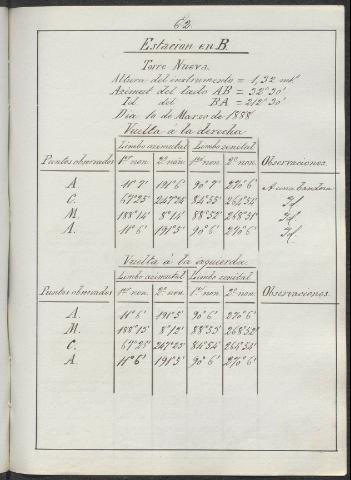 62.
Estacion en B.
Torre Nueva.
Altura del instrumento = 1,32 mt
Azimut del lado AB = 32° 30'
Id. del BA = 212° 30'
Dia 10 de Marzo de 1888
Vuelta á la derecha
Limbo azimutal Limbo zenital
Puntos observados 1er non. 2º non. 1er non. 2º non. Observaciones
A. 11° 7' 191° 6' 90° 7' 270° 6' A una bandera
C. 67° 25' 247° 24' 84° 55' 264° 54' Id.
M. 188° 14' 8° 14' 88° 52' 268° 51' Id.
A. 11° 6' 191° 5' 90° 6' 270° 6' Id.
Vuelta á la izquierda
Limbo azimutal Limbo zenital
Puntos observados 1er non. 2º non. 1er non. 2º non. Observaciones
A. 11° 6' 191° 5' 90° 6' 270° 6'
M. 188° 15' 8° 12' 88° 53' 268° 52'
C. 67° 25' 247° 25' 84° 54' 264° 54'
A. 11° 6' 191° 5' 90° 6' 270° 6'